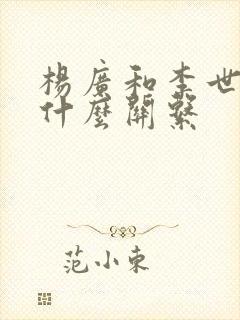 楊廣和李世
什麼關繫
范小東